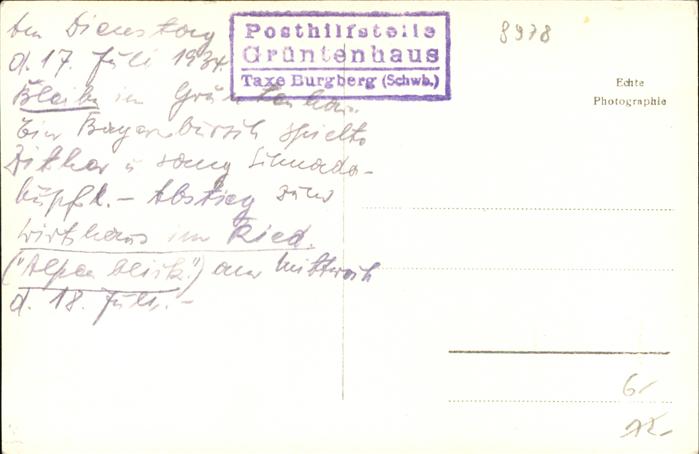 Am Dienstag
d. 17. Juli 1934.
Bleibe im Grüntenhaus.
Ein Bayernbursch spielte
Zither u. sang Schnada-
hüpfl. – Abstieg zum
Wirtshaus im Ried.
("Alpenblick".) am Mittwoch
d. 18. Juli. –
Posthilfstelle
Grüntenhaus
Taxe Burgberg (Schwb.)
8978
Echte
Photographie
6.-